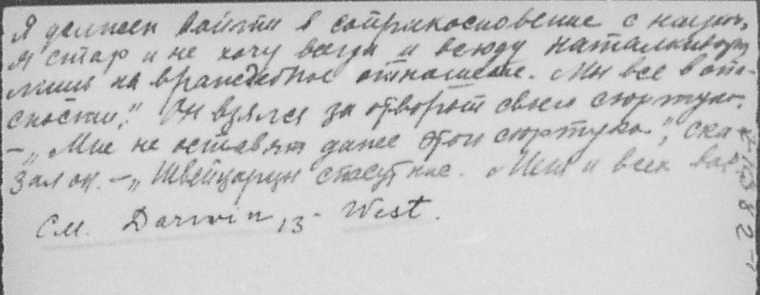 Я должен войти в соприкосновение с нацией,
я стар и не хочу везде и всюду наталкиваться
лишь на враждебное отношение. Мы все в опа-
сности." Он взялся за отворот своего сюртука.
– „Мне не оставят даже этого сюртука", ска-
зал он. – „Швейцарцы спасут нас. Меня и всех вас
См. Darwin, 13 - West.